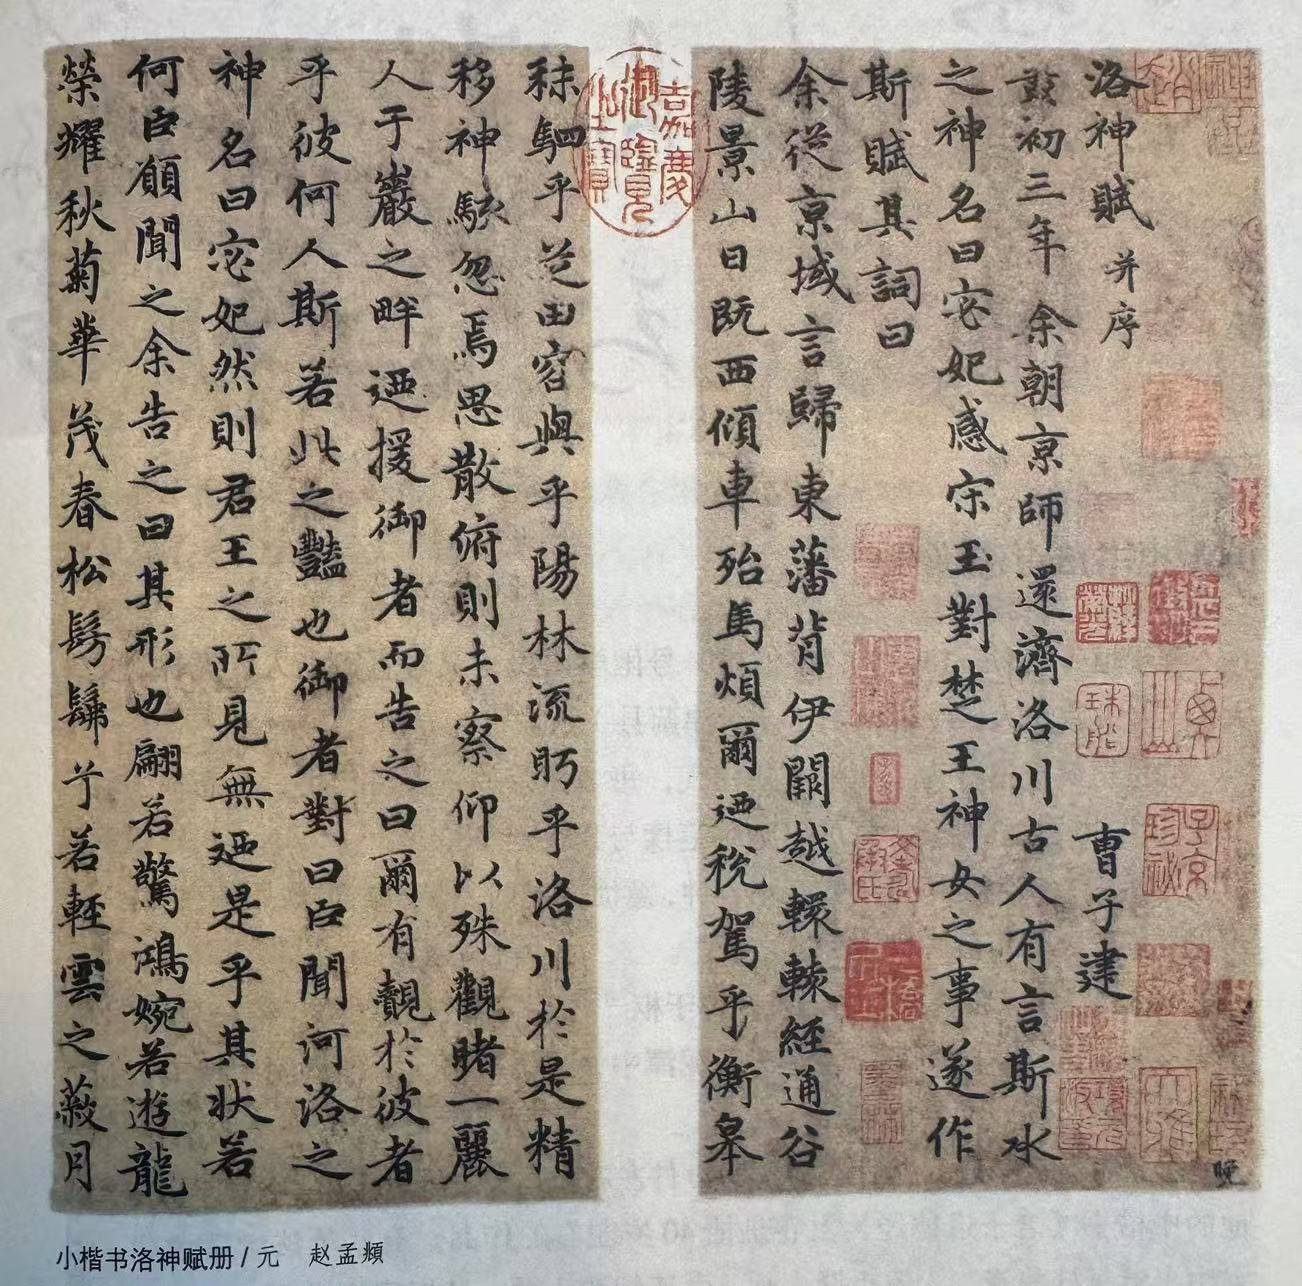 洛神賦 并序 曹子建
黃初三年余朝京師還濟洛川古人有言斯水
之神名曰宓妃感宋玉對楚王神女之事遂作
斯賦其詞曰
余從京域言歸東藩背伊闕越轘轅經通谷
陵景山日既西傾車殆馬煩爾迺稅駕乎衡皋
嘉慶御覽之寶
秣駟乎芝田容與乎陽林流眄乎洛川於是精
移神駭忽焉思散俯則未察仰以殊觀睹一麗
人于巖之畔迺援御者而告之曰爾有覿於彼者
乎彼何人斯若此之豔也御者對曰臣聞河洛之
神名曰宓妃然則君王之所見無迺是乎其狀若
何臣願聞之余告之曰其形也翩若驚鴻婉若遊龍
榮耀秋菊華茂春松髣髴兮若輕雲之蔽月
子京珍祕
小楷书洛神赋册/元 赵孟頫